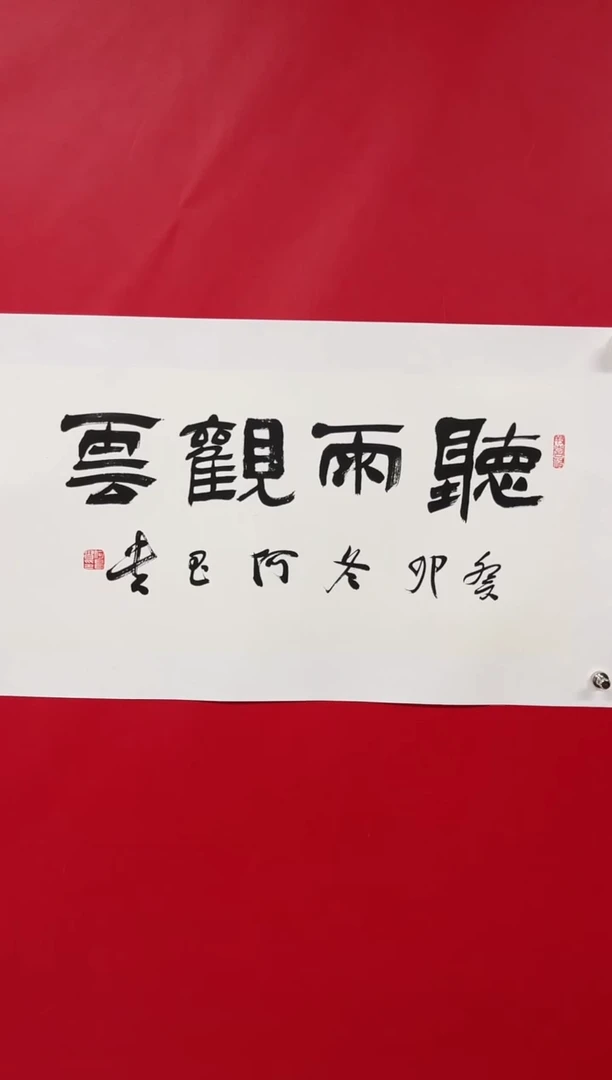 聽雨觀雲
癸卯冬阿昆書